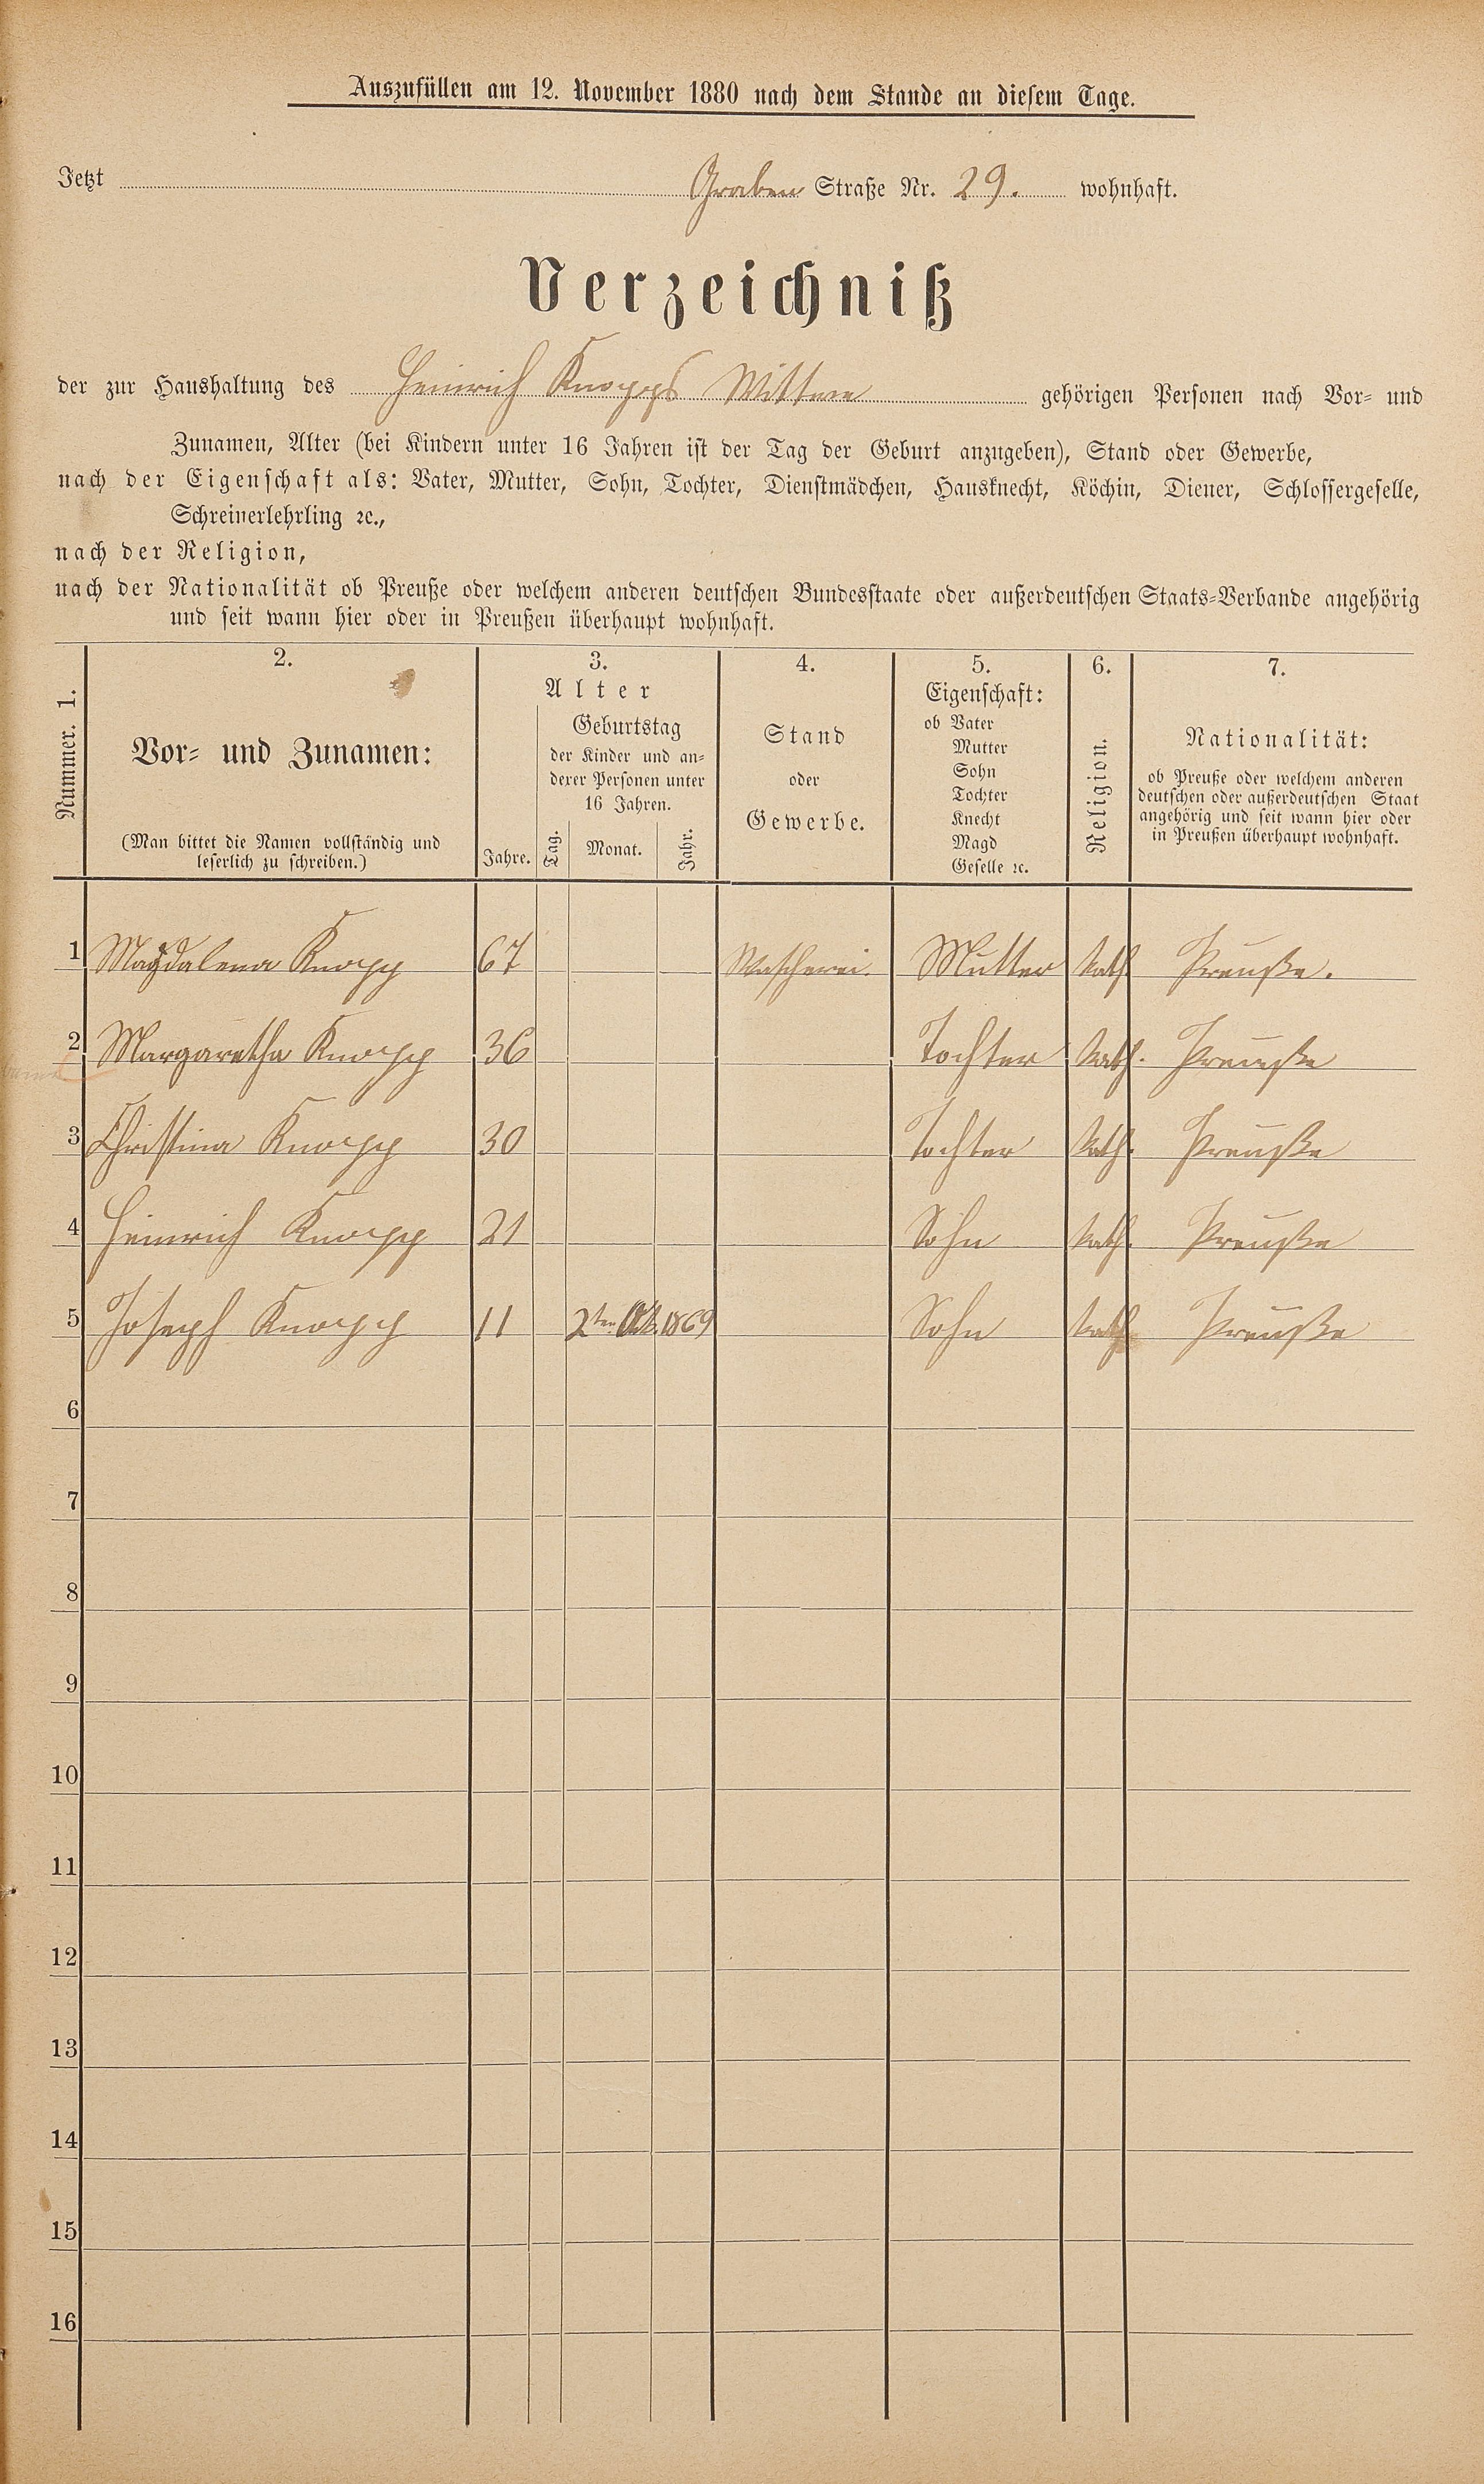 Auszufüllen am 12. November 1880 nach dem Stande an diesem Tage.
Jetzt Graben Straße Nr. 29. wohnhaft.
Verzeichniß
der zur Haushaltung des Heinrich Knopps Wittwe gehörigen Personen nach Vor- und
Zunamen, Alter (bei Kindern unter 16 Jahren ist der Tag der Geburt anzugeben), Stand oder Gewerbe,
nach der Eigenschaft als: Vater, Mutter, Sohn, Tochter, Dienstmädchen, Hausknecht, Köchin, Diener, Schlossergeselle,
Schreinerlehrling ꝛc.,
nach der Religion,
nach der Nationalität ob Preuße oder welchem anderen deutschen Bundesstaate oder außerdeutschen Staats-Verbande angehörig
und seit wann hier oder in Preußen überhaupt wohnhaft.
Nummer. 1.
2.
Vor- und Zunamen:
(Man bittet die Namen vollständig und
leserlich zu schreiben.)
3.
Alter
Jahre.
Geburtstag
der Kinder und an-
derer Personen unter
16 Jahren.
Tag. Monat. Jahr.
4.
Stand
oder
Gewerbe.
5.
Eigenschaft:
ob Vater
Mutter
Sohn
Tochter
Knecht
Magd
Geselle ꝛc.
6.
Religion.
7.
Nationalität:
ob Preuße oder welchem anderen
deutschen oder außerdeutschen Staat
angehörig und seit wann hier oder
in Preußen überhaupt wohnhaft.
1 Magdalena Knopp 67 Wascherei. Mutter kath. Preuße.
2 Margaretha Knopp 36 Tochter kath. Preuße
3 Christina Knopp 30 Tochter kath. Preuße
4 Heinrich Knopp 21 Sohn kath. Preuße
5 Joseph Knopp 11 2ten Okt. 1869 Sohn kath. Preuße
6
7
8
9
10
11
12
13
14
15
16